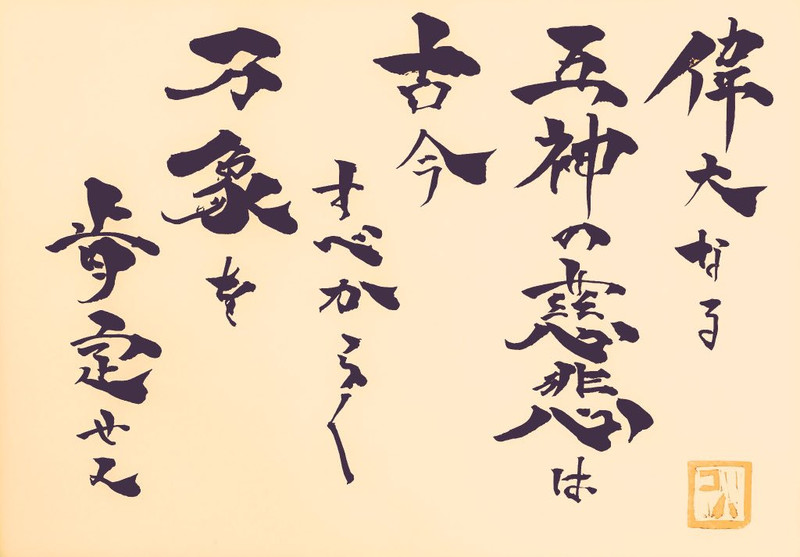 偉大なる
五神の慈悲は
古今
すべからく
万象を
肯定せん